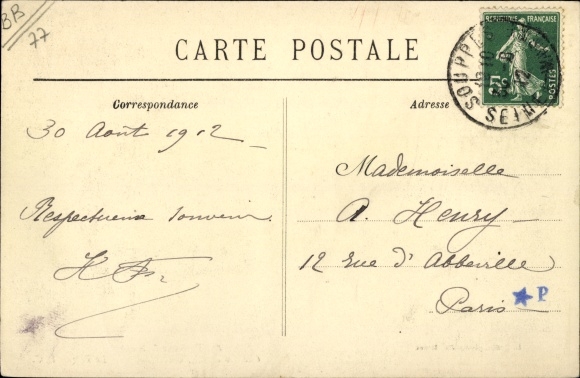 BB
77
CARTE POSTALE
RÉPUBLIQUE FRANÇAISE
5c
POSTES
SOUPPES
SEINE
Correspondance
Adresse
30 Août 1912
Respectueux souvenir
Mademoiselle
A. Henry
12 rue d'Abbeville
Paris
P